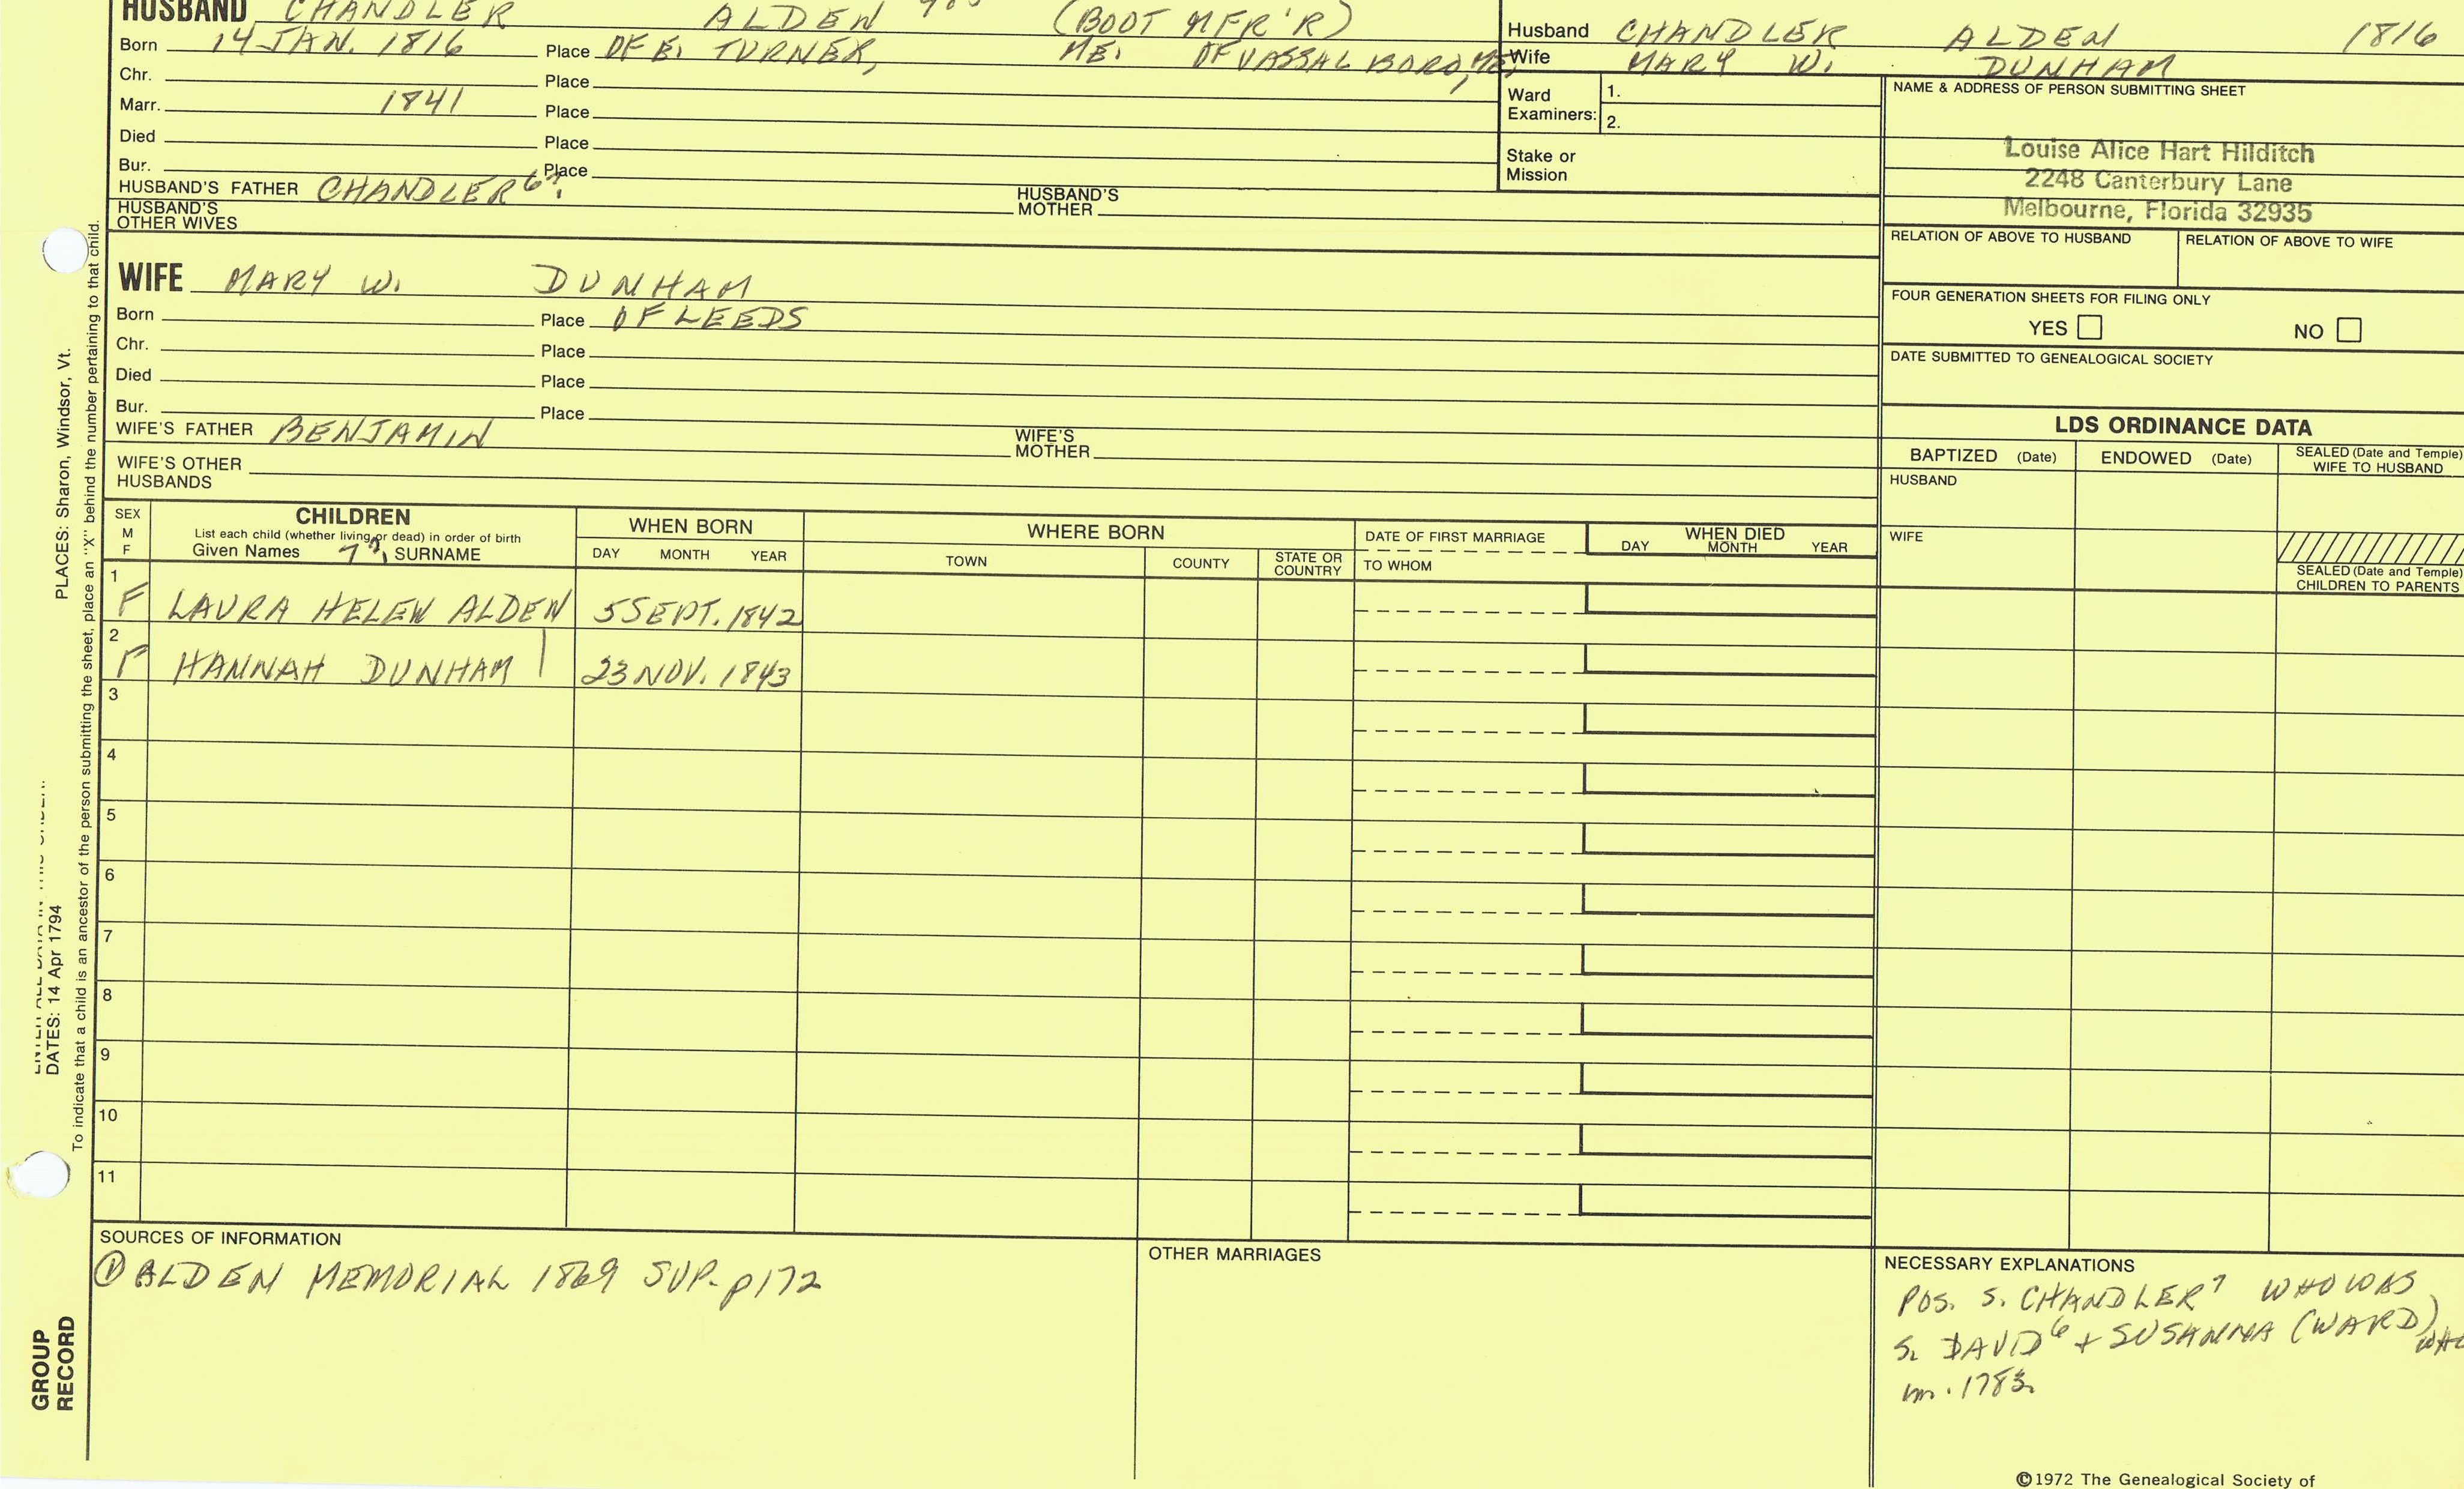 HUSBAND CHANDLER ALDEN (BOOT MFR'R)
Born 14 JAN. 1816 Place OF E. TURNER, ME. OF VASSALBORO, ME.
Chr. Place
Marr. 1841 Place
Died Place
Bur. Place
HUSBAND'S FATHER CHANDLER 6?. HUSBAND'S MOTHER
HUSBAND'S OTHER WIVES
Husband CHANDLER ALDEN 1816
Wife MARY W. DUNHAM
Ward Examiners: 1.
2.
Stake or Mission
NAME & ADDRESS OF PERSON SUBMITTING SHEET
Louise Alice Hart Hilditch
2248 Canterbury Lane
Melbourne, Florida 32935
RELATION OF ABOVE TO HUSBAND RELATION OF ABOVE TO WIFE
FOUR GENERATION SHEETS FOR FILING ONLY
YES NO
DATE SUBMITTED TO GENEALOGICAL SOCIETY
WIFE MARY W. DUNHAM
Born Place OF LEEDS
Chr. Place
Died Place
Bur. Place
WIFE'S FATHER BENJAMIN WIFE'S MOTHER
WIFE'S OTHER HUSBANDS
LDS ORDINANCE DATA
BAPTIZED (Date) ENDOWED (Date) SEALED (Date and Temple) WIFE TO HUSBAND
HUSBAND
WIFE
SEALED (Date and Temple) CHILDREN TO PARENTS
SEX M F
CHILDREN
List each child (whether living or dead) in order of birth
Given Names SURNAME
WHEN BORN
DAY MONTH YEAR
WHERE BORN
TOWN COUNTY STATE OR COUNTRY
DATE OF FIRST MARRIAGE
TO WHOM
WHEN DIED
DAY MONTH YEAR
1 F LAURA HELEN ALDEN 5 SEPT. 1842
2 F HANNAH DUNHAM | 23 NOV. 1843
3
4
5
6
7
8
9
10
11
SOURCES OF INFORMATION
① ALDEN MEMORIAL 1869 SUP. p172
OTHER MARRIAGES
NECESSARY EXPLANATIONS
POS. S. CHANDLER7 WHO WAS
S. DAVID6 + SUSANNA (WARD)
m. 1783
©1972 The Genealogical Society of
PLACES: Sharon, Windsor, Vt.
DATES: 14 Apr 1794
To indicate that a child is an ancestor of the person submitting the sheet, place an "X" behind the number pertaining to that child.
GROUP
RECORD